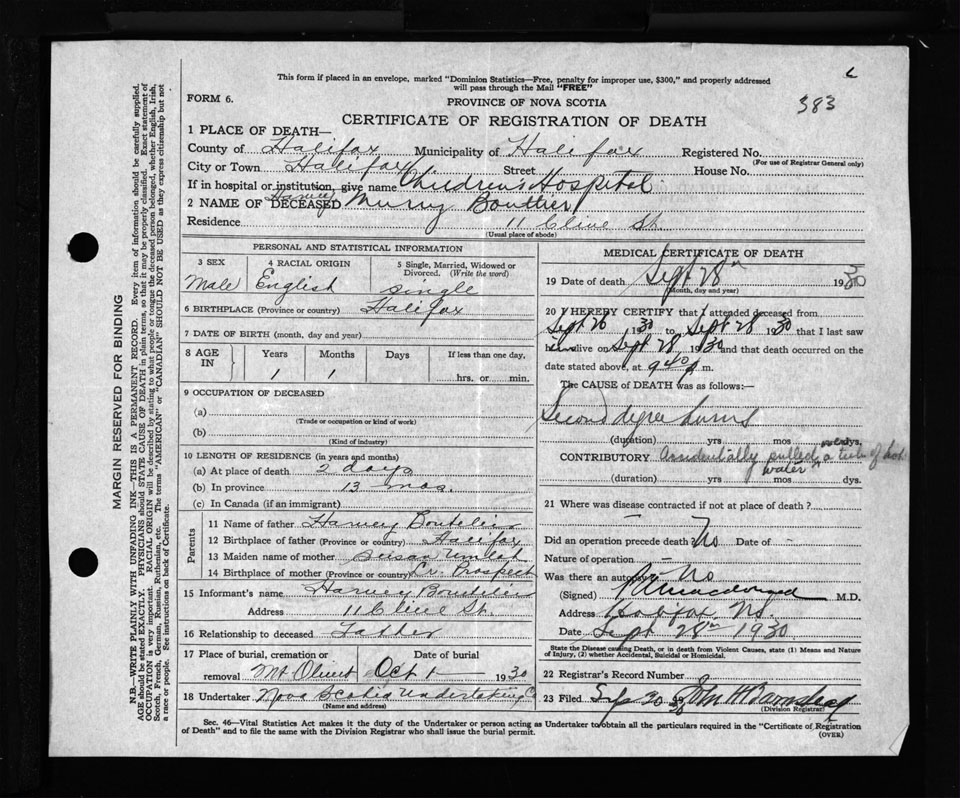 This form if placed in an envelope, marked "Dominion Statistics—Free, penalty for improper use, $300," and properly addressed
will pass through the Mail "FREE"
FORM 6.
PROVINCE OF NOVA SCOTIA
383
CERTIFICATE OF REGISTRATION OF DEATH
1 PLACE OF DEATH—
County of Halifax Municipality of Halifax Registered No.
(For use of Registrar General only)
City or Town Halifax Street House No.
If in hospital or institution, give name Children's Hospital
2 NAME OF DECEASED Harvey Murry Boutlier
Residence 11 Clive St.
(Usual place of abode)
PERSONAL AND STATISTICAL INFORMATION
3 SEX 4 RACIAL ORIGIN 5 Single, Married, Widowed or Divorced. (Write the word)
Male English Single
6 BIRTHPLACE (Province or country) Halifax
7 DATE OF BIRTH (month, day and year)
8 AGE IN Years Months Days If less than one day,
1 1 hrs. or min.
9 OCCUPATION OF DECEASED
(a)
(Trade or occupation or kind of work)
(b)
(Kind of industry)
10 LENGTH OF RESIDENCE (in years and months)
(a) At place of death 2 days
(b) In province 13 mos.
(c) In Canada (if an immigrant)
Parents
11 Name of father Harvey Boutelier
12 Birthplace of father (Province or country) Halifax
13 Maiden name of mother Susan Umlah
14 Birthplace of mother (Province or country) Lr. Prospect
15 Informant's name Harvey Boutelier
Address 11 Clive St.
16 Relationship to deceased Father
17 Place of burial, cremation or removal Mt Olivet Date of burial Oct 1 1930
18 Undertaker Nova Scotia Undertaking Co
(Name and address)
MEDICAL CERTIFICATE OF DEATH
19 Date of death Sept 28th 1930
(Month, day and year)
20 I HEREBY CERTIFY that I attended deceased from
Sept 26 1930 to Sept 28 1930 that I last saw
him alive on Sept 28 1930 and that death occurred on the
date stated above, at 9 40 p m.
The CAUSE of DEATH was as follows:—
Second degree burns
(duration) yrs mos dys.
CONTRIBUTORY Assidentially pulled over a tub of hot
water"
(duration) yrs. mos. dys.
21 Where was disease contracted if not at place of death?
Did an operation precede death No Date of -
Nature of operation
Was there an autopsy No
(Signed) M.D.
Address Halifax NS
Date Sept 28th 1930
State the Disease Causing Death, or in death from Violent Causes, state (1) Means and Nature
of Injury, (2) whether Accidental, Suicidal or Homicidal.
22 Registrar's Record Number
23 Filed Sep 30 30 John H Barnstead
(Division Registrar)
Sec. 46—Vital Statistics Act makes it the duty of the Undertaker or person acting as Undertaker to obtain all the particulars required in the "Certificate of Registration
of Death" and to file the same with the Division Registrar who shall issue the burial permit.
(OVER)
MARGIN RESERVED FOR BINDING
N.B.—WRITE PLAINLY WITH UNFADING INK—THIS IS A PERMANENT RECORD. Every item of information should be carefully supplied.
AGE should be stated EXACTLY. PHYSICIANS should STATE CAUSE OF DEATH in plain terms, so that it may be properly classified. Exact statement of
OCCUPATION is very important. RACIAL ORIGIN will be described by stating to what people or tongue the deceased person belonged, whether English, Irish,
Scotch, French, German, Russian, Ruthenian, etc. The terms "AMERICAN" or "CANADIAN" SHOULD NOT BE USED as they express citizenship but not
a race or people. See instructions on back of Certificate.